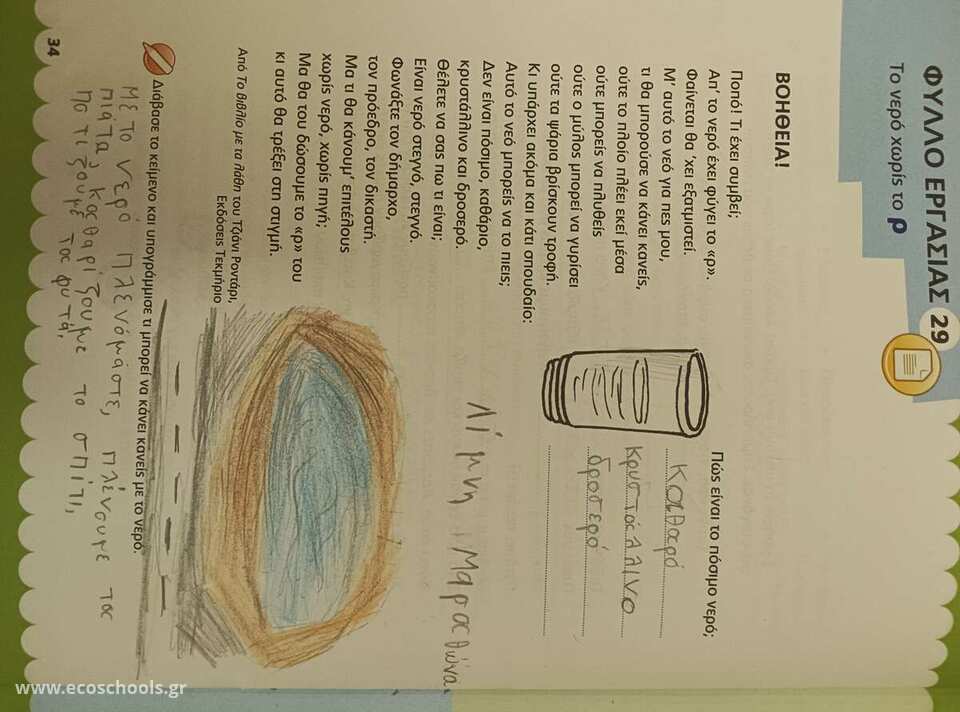 ΦΥΛΛΟ ΕΡΓΑΣΙΑΣ 29
Το νερό χωρίς το ρ
ΒΟΗΘΕΙΑ!
Ποπό! Τι έχει συμβεί;
Απ' το νερό έχει φύγει το «ρ».
Φαίνεται θα 'χει εξατμιστεί.
Μ' αυτό το νεό για πες μου,
τι θα μπορούσε να κάνει κανείς,
ούτε το πλοίο πλέει εκεί μέσα
ούτε μπορείς να πλυθείς
ούτε ο μύλος μπορεί να γυρίσει
ούτε τα ψάρια βρίσκουν τροφή.
Κι υπάρχει ακόμα και κάτι σπουδαίο:
Αυτό το νεό μπορείς να το πιεις;
Δεν είναι πόσιμο, καθάριο,
κρυστάλλινο και δροσερό.
Θέλετε να σας πω τι είναι;
Είναι νερό στεγνό, στεγνό.
Φωνάξτε τον δήμαρχο,
τον πρόεδρο, τον δικαστή.
Μα τι θα κάνουμ' επιτέλους
χωρίς νερό, χωρίς πηγή;
Μα θα του δώσουμε το «ρ» του
κι αυτό θα τρέξει στη στιγμή.
Από Το βιβλίο με τα λάθη του Τζάνι Ροντάρι,
Εκδόσεις Τεκμήριο
Πώς είναι το πόσιμο νερό;
καθαρό
κρυστάλλινο
δροσερό
Λίμνη Μαραθώνα
Διάβασε το κείμενο και υπογράμμισε τι μπορεί να κάνει κανείς με το νερό.
Με το νερό πλενόμαστε, πλένουμε τας
πιάτα, καθαρίζουμε το σπίτι,
ποτίζουμε τας φυτά.
34
www.ecoschools.gr